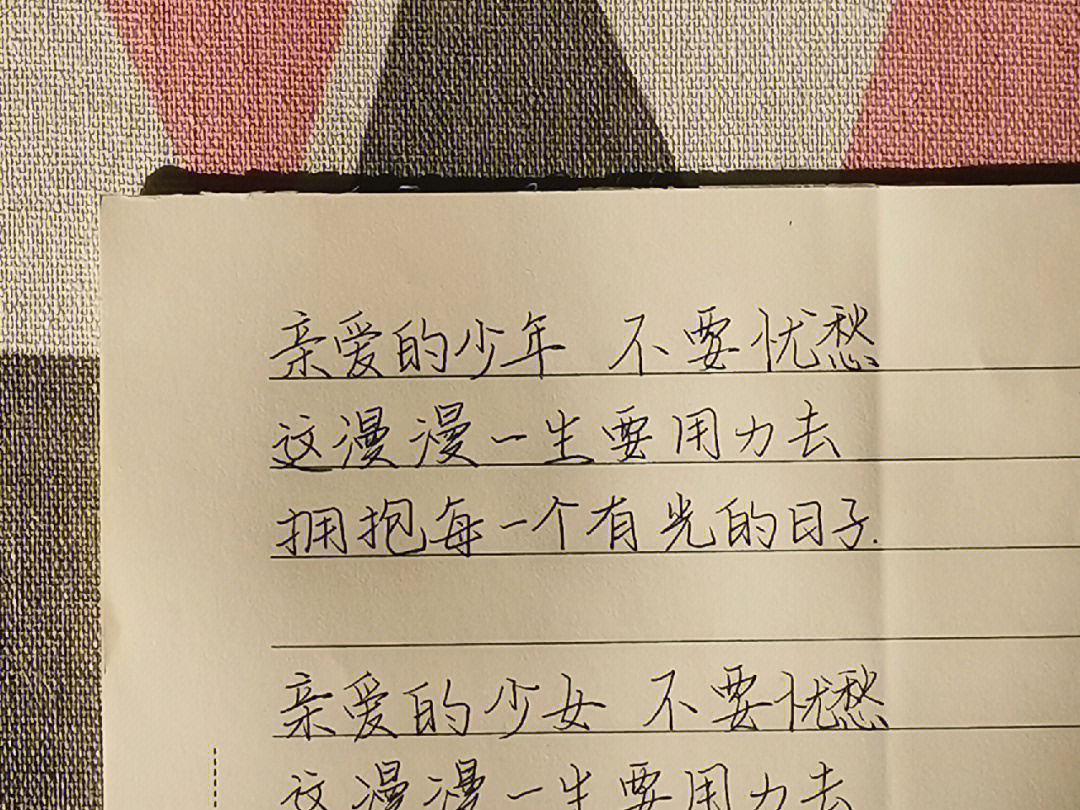 亲爱的少年 不要忧愁
这漫漫一生要用力去
拥抱每一个有光的日子.
亲爱的少女 不要忧愁
这漫漫一生要用力去